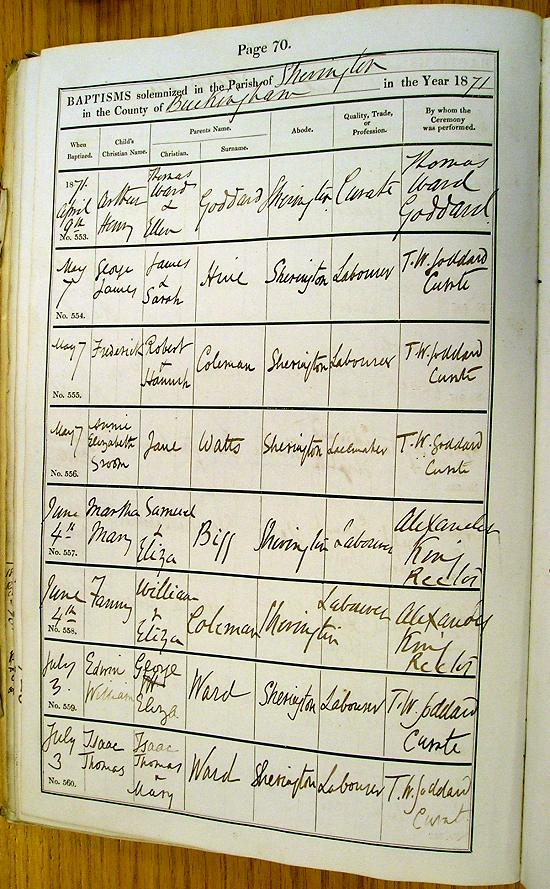 Page 70.
BAPTISMS solemnized in the Parish of Sherington
in the County of Buckingham in the Year 1871
When Baptized. Child's Christian Name. Parents Name. Christian. Surname. Abode. Quality, Trade, or Profession. By whom the Ceremony was performed.
1871. April 9th No. 553. Arthur Henry Thomas Ward & Ellen Goddard Sherington Curate Thomas Ward Goddard
May 7 No. 554. George James James & Sarah Hine Sherington Labourer T. W. Goddard Curate
May 7 No. 555. Frederick Robert & Hannah Coleman Sherington Labourer T. W. Goddard Curate
May 7 No. 556. Annie Elizabeth Groom Jane Watts Sherington Lacemaker T. W. Goddard Curate
June 4th No. 557. Martha Mary Samuel & Eliza Biss Sherington Labourer Alexander King Rector
June 4th No. 558. Fanny William & Eliza Coleman Sherington Labourer Alexander King Rector
July 3. No. 559. Edwin William George & Eliza Ward Sherington Labourer T. W. Goddard Curate
July 3 No. 560. Isaac Thomas Isaac Thomas & Mary Ward Sherington Labourer T. W. Goddard Curat